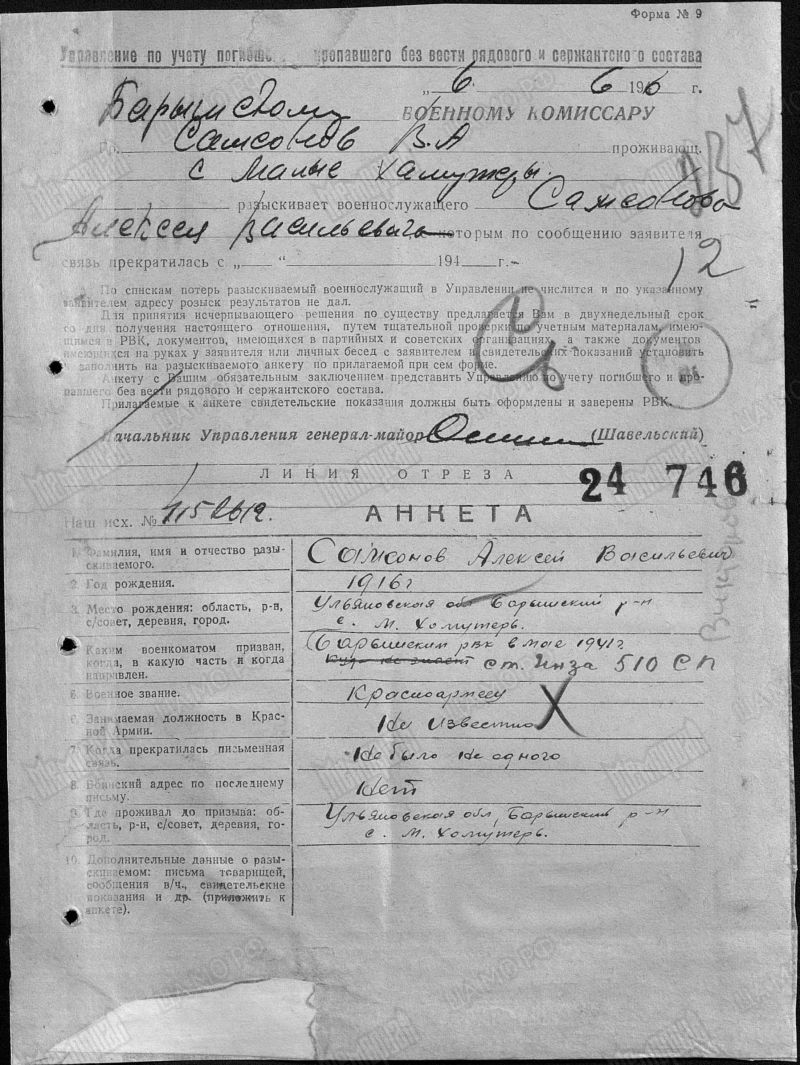 Форма № 9
Управление по учету погибшего и пропавшего без вести рядового и сержантского состава
„ 6 “ 6 196 г.
Барышскому ВОЕННОМУ КОМИССАРУ
Гр. Самсонов В.А проживающ.
с Малые Хомутеры
разыскивает военнослужащего Самсонова
Алексея Васильевича которым по сообщению заявителя
связь прекратилась с „ “ 194 г.
По спискам потерь разыскиваемый военнослужащий в Управлении не числится и по указанному
заявителем адресу розыск результатов не дал.
Для принятия исчерпывающего решения по существу предлагается Вам в двухнедельный срок
со дня получения настоящего отношения, путем тщательной проверки по учетным материалам, имею-
щимся в РВК, документов, имеющихся в партийных и советских организациях, а также документов
имеющихся на руках у заявителя или личных бесед с заявителем и свидетельских показаний установить
и заполнить на разыскиваемого анкету по прилагаемой при сем форме.
Анкету с Вашим обязательным заключением представить Управлению по учету погибшего и про-
павшего без вести рядового и сержантского состава.
Прилагаемые к анкете свидетельские показания должны быть оформлены и заверены РВК.
Начальник Управления генерал-майор (Шавельский)
12
ЛИНИЯ ОТРЕЗА
24 746
Наш исх. №
АНКЕТА
1. Фамилия, имя и отчество разы-
скиваемого.
Самсонов Алексей Васильевич
2. Год рождения.
1916г
3. Место рождения: область, р-н,
с/совет, деревня, город.
Ульяновская обл Барышский р-н
с. М. Хомутерь.
4. Каким военкоматом призван,
когда, в какую часть и когда
направлен.
Барышским рвк в мае 1941г
Куда не знает ст. Инза 510 СП
5. Военное звание.
Красноармеец
6. Занимаемая должность в Крас-
ной Армии.
Не известно
7. Когда прекратилась письменная
связь.
Не было не одного
8. Воинский адрес по последнему
письму.
Нет
9. Где проживал до призыва: об-
ласть, р-н, с/совет, деревня, го-
род.
Ульяновская обл, Барышский р-н
с. М. Хомутерь.
10. Дополнительные данные о разы-
скиваемом: письма товарищей,
сообщения в/ч., свидетельские
показания и др. (приложить к
анкете).
ЦАМО РФ